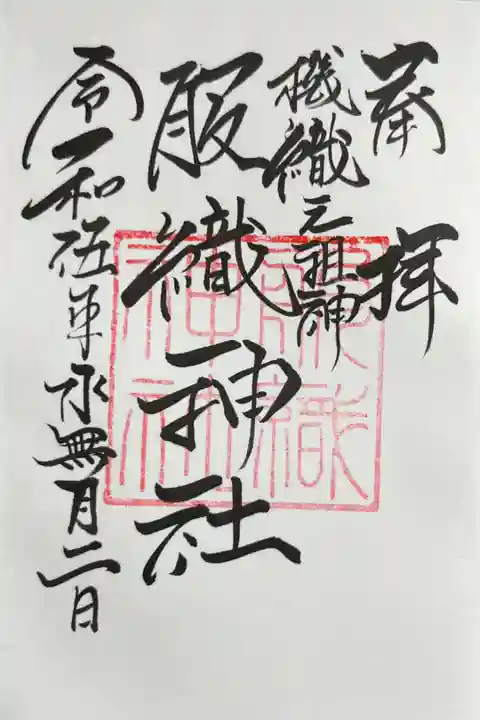 奉拝
機織元祖神
服織神社
令和伍年水無月二日
服織神社